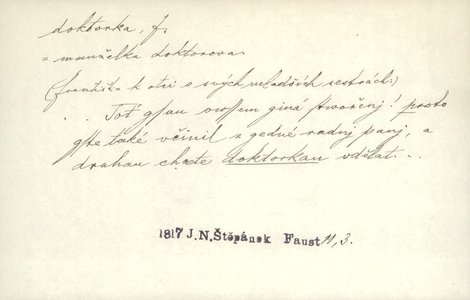 doktorka, f.
= manželka doktorova.
(Franžika k otci o svých mladších sestrách:)
.. Toť gsau owssem giná stwořenj! proto
gste také včinil z gedné radnj panj, a
drahau chcete doktorkau vdělat...
1817 J.N.Štěpánek Faust 11, 3.